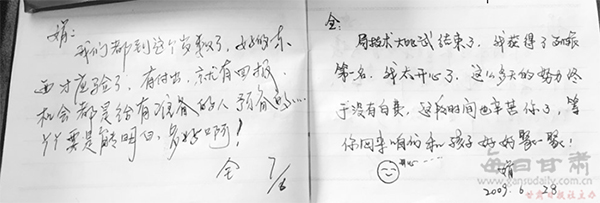 娟:
我们都到这个岁数了，好的东
西才应验了，有付出，就有回报，
机会都是给有准备的人预备的…
丫丫要是能明白，多好啊！
全 7/6
全:
局技术大比试结束了，我获得了
第一名，我太开心了，这么多天的努力终
于没有白费，这段时间也辛苦你了，等
你回来咱们和孩子好好聚一聚！
娟
2009. 6 28
每日甘肃
gansudaily.com.cn
甘肃日报社主办